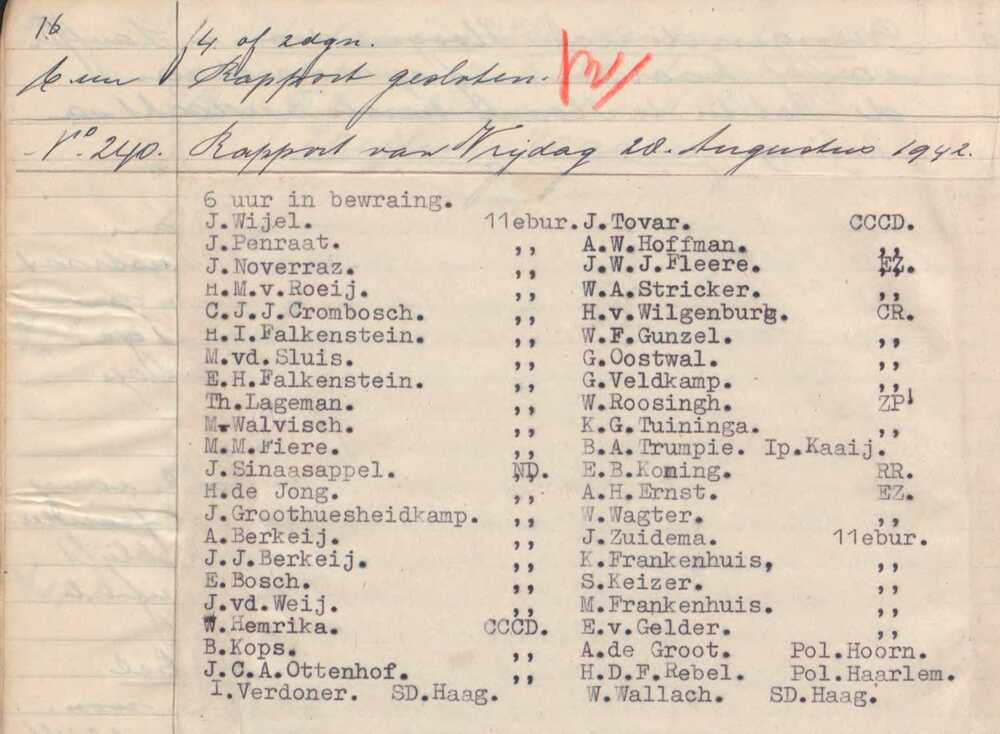 16
4. of 2dgn.
6 uur Rapport gesloten.
No. 240. Rapport van Vrijdag 28. Augustus 1942.
6 uur in bewraing.
J.Wijel. 11ebur. J.Tovar. CCCD.
J.Penraat. ,, A.W.Hoffman. ,,
J.Noverraz. ,, J.W.J.Fleere. EZ.
H.M.v.Roeij. ,, W.A.Stricker. ,,
C.J.J.Crombosch. ,, H.v.Wilgenburg. CR.
H.I.Falkenstein. ,, W.F.Gunzel. ,,
M.vd.Sluis. ,, G.Oostwal. ,,
E.H.Falkenstein. ,, G.Veldkamp. ,,
Th.Lageman. ,, W.Roosingh. ZP
M.Walvisch. ,, K.G.Tuininga. ,,
M.M.Fiere. ,, B.A.Trumpie. Ip.Kaaij.
J.Sinaasappel. ND. E.B.Koming. RR.
H.de Jong. ,, A.H.Ernst. EZ.
J.Groothuesheidkamp. ,, W.Wagter. ,,
A.Berkeij. ,, J.Zuidema. 11ebur.
J.J.Berkeij. ,, K.Frankenhuis, ,,
E.Bosch. ,, S.Keizer. ,,
J.vd.Weij. ,, M.Frankenhuis. ,,
W.Hemrika. CCCD. E.v.Gelder. ,,
B.Kops. ,, A.de Groot. Pol.Hoorn.
J.C.A.Ottenhof. ,, H.D.F.Rebel. Pol.Haarlem.
I.Verdoner. SD.Haag. W.Wallach. SD.Haag.